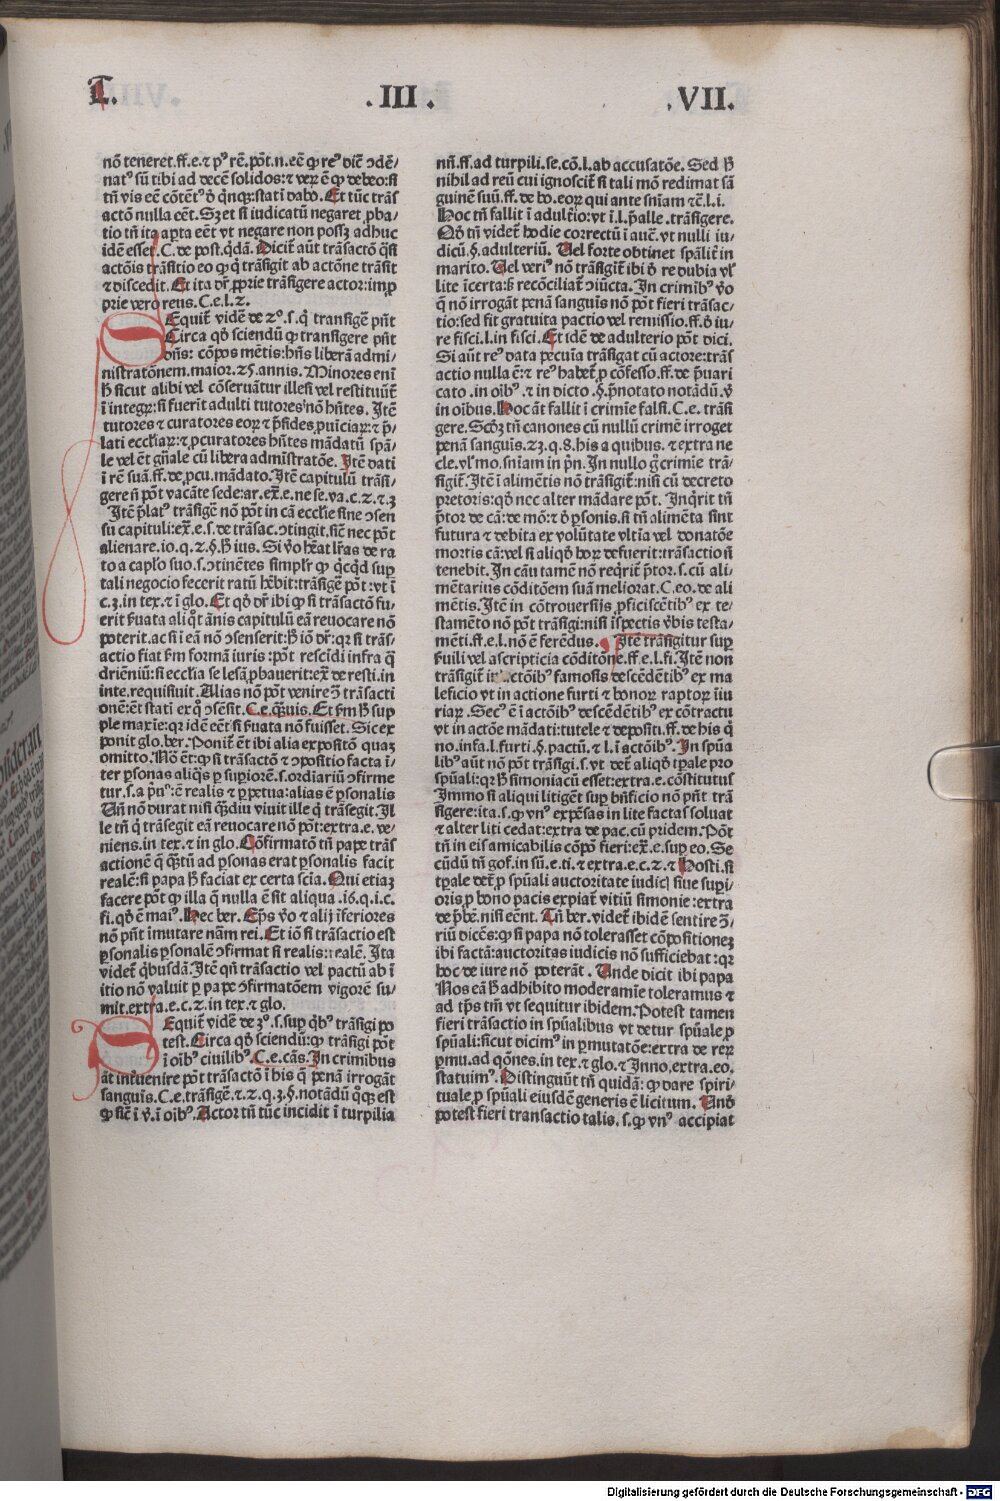 L. .III. .VII.
nō teneret.ff.e.⁊ pꝰ rē.pōt.n.eē ꝙ reꝰ dic̄ ↄdē/
natꝰ sū tibi ad decē solidos:⁊ verꝝ ē ꝙ debeo:si
actōn nulla eēt. Sꝫ et si iudicatū negaret ꝓba/
tio tn̄ ita aꝑta eēt vt negare non possꝫ adhuc
idē esset.C.de post.q̄dā. Dicit̄ aūt trāsactō q̄si
actōis trāsitio eo ꝙ q̇ trāsigit ab actōne trāsit
⁊ discedit. Et ita dr̄ ꝓprie trāsigere actor:imꝓ
prie vero reus.C.e.l.2.
Equit̄ vidē de 2ꝰ.s.q̇ transigē pn̄t
Circa qḋ sciendū ꝙ transigere pn̄t
oīs: cōpos mētis:hn̄s liberā admi/
nistratōnem.maior.25.annis. Minores eni
ħ sicut alibi vel cōseruāntur illesi vel restituūt̄
ī integꝝ:si fuerīt adulti tutores nō hn̄tes. Itē
tutores ⁊ curatores eoꝝ ⁊ p̄sides ꝓuīciaꝝ:⁊ p̄/
lati eccl̄iaꝝ:⁊ ꝓcuratores hn̄tes mādatū spā/
le vel ēt gn̄ale cū libera admīstratōe. Itē dati
ī rē suā.ff.de ꝓcu.mādato. Itē capitulū trāsi/
gere n̄ pōt vacāte sede:ar.ex̄.e.ne se.va.c.2.⁊.3
Itē p̄latꝰ trāsigē nō pōt in cā eccl̄ie sine ↄsen
su capituli:ex̄.e.s.de trāsac.ↄtingit.sic̄ nec pōt
alienare.10.q.2.§.ħ ius. Si v̊o hēat lr̄as de ra
to a capl̄o suo.s.ↄtinētes simplr̄ ꝙ q̇cq̇d suꝑ
tali negocio fecerit ratū hēbit:trāsigē pōt:vt ī
c.3.in tex.⁊ ī glo. Et qḋ dr̄ ibi ꝙ si trāsactō fu/
erit ẜuata aliq̊t ānis capitulū eā reuocare nō
poterit.ac si ī eā nō ↄsenserit:ħ iō dr̄:qꝛ si trās/
actio fiat ẜm formā iuris:pōt rescidi infra q̄
drieniū:si eccl̄ia se lesā ꝓbauerit:ex̄.de resti.in
inte.requisiuit. Alias nō pōt venire ↄ̄ trāsacti
onē:ēt statī ex q̊ ↄsēsit. C.e.q̄uis. Et ẜm ħ sup
ple maxīe:qꝛ idē eēt:si ẜuata nō fuisset. Sic ex
ponit glo.ber. Ponit̄ ēt ibi alia expositō quaꝫ
omitto. Nō ēt:ꝙ si trāsactō ⁊ ↄpositio facta ī/
ter ꝑsonas aliq̄s ꝑ suꝑiorē.s.ordiariū ↄfirme
tur.s.a p̄nꝰ:ē realis ⁊ ꝑpetua:alias ē ꝑsonalis
Vn̄ nō durat nisi q̄diu viuit ille q̇ trāsegit. Il
le tn̄ q̇ trāsegit eā reuocare nō pōt:extra.e.ve/
niens.in tex.⁊ in glo. Cōfirmatō tn̄ pape trās
actionē q̄ q̄tū ad ꝑsonas erat ꝑsonalis facit
realē:si papa ħ faciat ex certa scīa. Qui etiaꝫ
facere pōt ꝙ illa q̄ nulla ē sit aliqua.16.q.1.c.
fi.qḋ ē maiꝰ. Hec ber. Ep̄s v̊o ⁊ alij īferiores
nō pn̄t īmutare nām rei. Et iō si trāsactio est
ꝑsonalis ꝑsonalē ↄfirmat si realis:realē. Ita
videt̄ q̇busdā. Itē qn̄ trāsactio vel pactū ab ī
itio nō valuit ꝑ pape ↄfirmatōem vigorē su/
mit.extra.e.c.2.in tex.⁊ glo.
Equit̄ vidē de 3ꝰ.s.suꝑ q̇bꝰ trāsigi po
test. Circa qḋ sciendū:ꝙ trāsigi pōt
ī oībꝰ ciuilibꝰ. C.e.cās. In crimibus
āt inꝰuenire pōt trāsactō ī his q̄ penā irrogāt
sanguīs.C.e.trāsigē.⁊.2.q.3.§.notādū q̊qꝫ est
ꝙ sic̄ ī v̊.ī oībꝰ. Actor tn̄ tūc incidit ī turpilia
nū.ff.ad turpili.se.cō.l.ab accusatōe. Sed ħ
nihil ad reū cui ignoscit̄ si tali mō redimat sā
guinē suū.ff.de bo.eoꝝ qui ante sn̄iam ⁊c̄.l.1.
Hoc tn̄ fallit ī adult̄io:vt ī.l.p̄alle.trāsigere.
Qḋ tn̄ videt̄ hodie correctū ī auc̄.vt nulli iu/
dicū.§.adulteriū. Vel forte obtinet spāliť in
marito. Vel veriꝰ nō trāsigit̄ ibi d̊ re dubia vl̄
lite īcerta:ß recōciliat̄ ↄiūcta. In crimībꝰ v̊o
q̄ nō irrogāt penā sanguīs nō pōt fieri trāsac/
tio:sed fit gratuita pactio vel remissio.ff.d̊ iu/
re fisci.l.in fisci. Et idē de adulterio pōt dici.
Si aūt reꝰ data pecuīa trāsigat cū actore:trās
actio nulla ē:⁊ reꝰ habet̄ ꝓ cōfesso.ff.de p̄uari
cato.in oībꝰ.⁊ in dicto.§.p̄notato notādū.v̊
in oībus. Hoc āt fallit ī crimīe falsi.C.e.trāsi
gere. Scḋꝫ tn̄ canones cū nullū crimē irroget
penā sanguīs.⁊23.q.8.his a quibus.⁊ extra ne
cle.vl̄ mo.sn̄iam in pn̄. In nullo g̊ crimīe trā/
sigit̄. Itē ī alimētis nō trāsigit̄:nisi cū decreto
pretoris:qḋ nec alter mādare pōt. Inq̇rit tn̄
p̄tor de cā:de mō:⁊ d̊ ꝑsonis.si tn̄ alimēta sint
futura ⁊ debita ex volūtate vltīa vel donatōe
mortis cā:vel si aliqḋ hoꝝ defuerit:trāsactio n̄
tenebit. In cāu tamē nō req̇rit̄ p̄tor.s.cū ali/
mētarius cōditōem suā meliorat.C.eo.de ali
mētis. Itē in cōtrouersijs ꝓficiscētibꝰ ex te/
stamēto nō pōt trāsigi:nisi īspectis v̊bis testa/
mēti.ff.e.l.nō ē ferēdus. Itē trāsigitur suꝑ
ẜuili vel ascripticia cōditōne.ff.e.l.fi. Itē non
trāsigit̄ in actōibꝰ famosis descēdētibꝰ ex ma
leficio vt in actione furti ⁊ bonoꝝ raptoꝝ īiu
riaꝝ. Secꝰ ē ī actōibꝰ descēdētibꝰ ex cōtractu
vt in actōe mādati:tutele ⁊ depositi.ff.de his q̇
no.infa.l.furti.§.pactū.⁊ l.ī actōibꝰ. In spūa
libꝰ aūt nō pōt trāsigi.s.vt det̄ aliqḋ tꝑale pro
spūali:qꝛ ħ simoniacū esset:extra.e.cōstitutus
Immo si aliqui litigēt suꝑ bn̄ficio nō pn̄t trā
sigere:ita.s.ꝙ vnꝰ expēsas in lite factas soluat
⁊ alter liti cedat:extra de pac.cū pridem. Pōt
tn̄ in eis amicabilis cōpō fieri:ex̄.e.suꝑ eo. Se
cūdū tn̄ gof.in sū.e.ti.⁊ extra.e.c.2.⁊ Hosti.si
tꝑale det̄ ꝓ spūali auctoritate iudicꝭ siue suꝑi/
oris ꝓ bono pacis expiat̄ vitiū simonie:extra
de p̄bē.nisi eēnt. Tn̄ ber.videt̄ ibidē sentire ↄ̄/
riū dicēs:ꝙ si papa nō tolerasset cōpositioneꝫ
ibi factā:auctoritas iudicis nō sufficiebat:qꝛ
hoc de iure nō poterāt. Vnde dicit ibi papa
Nos eā ħ adhibito moderamīe toleramus ⁊
ad tp̄s tm̄ vt sequitur ibidem. Potest tamen
fieri trāsactio in spūalibus vt detur spūale ꝓ
spūali:sicut dicimꝰ in ꝑmutatōe:extra de reꝝ
ꝑmu.ad qōnes.in tex.⁊ glo.⁊ Inno.extra.eo.
statuimꝰ. Distinguūt tn̄ quidā: ꝙ dare spiri/
tuale ꝓ spūali eiusdē generis ē licitum. Vnḋ
potest fieri transactio talis.s.ꝙ vnꝰ accipiat
Digitalisierung gefördert durch die Deutsche Forschungsgemeinschaft - DFG